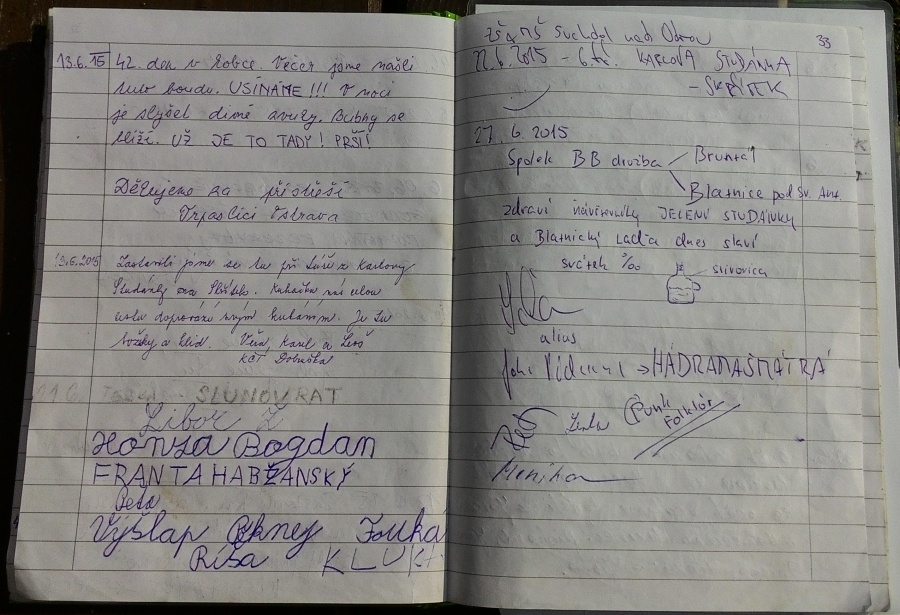 13.6.15 42. den v
Večer jsme našli
tuto boudu. USÍNÁME !!! V noci
je slyšet divné zvuky. Bubny se
blíží. UŽ JE TO TADY! PRŠÍ!
Děkujeme za přístřeší
Trpaslíci Ostrava
19.6.2015 Zastavili jsme se tu při túře z Karlovy
Studánky na
Kukačka nás celou
cestu doprovází svým kukáním. Je tu
božsky a klid. Věra, Karel a Leoš
KČT
SLUNOVRAT
Libor Z
Honza Bogdan
FRANTA HABŽANSKÝ
Peťa
Výšlap
Fouka
Ríša KLUK
ZŠ a MŠ Suchdol nad Odrou 33
22.6.2015 - 6.tř. KARLOVA STUDÁNKA
- SKŘÍTEK
27.6.2015
Spolek BB družba Bruntál
Blatnice pod Sv. Ant.
zdraví návštěvníky JELENÍ STUDÁNKY
a Blatnický Laďa dnes slaví
svátek
slivovica
alias
HADRAMAŠMATRA
Punk
Folklór
Monika